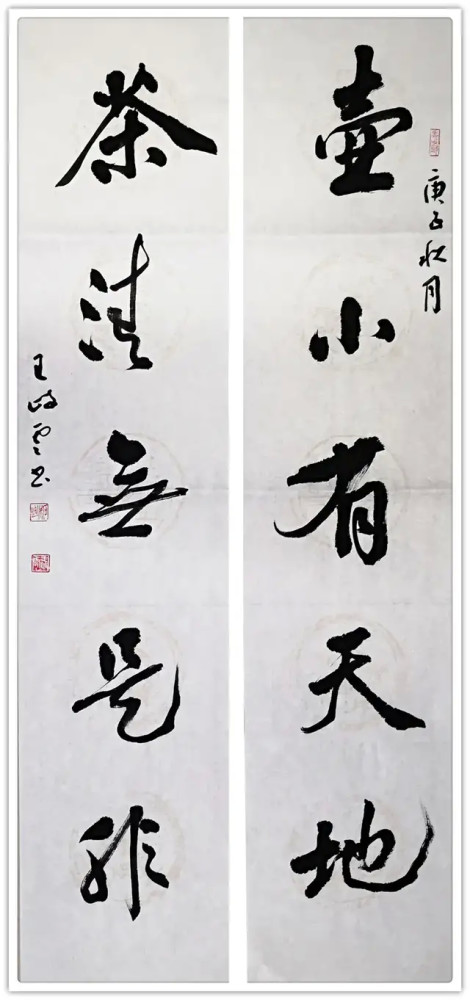 壶小有天地
庚子秋月
茶清無是非
王 雲书